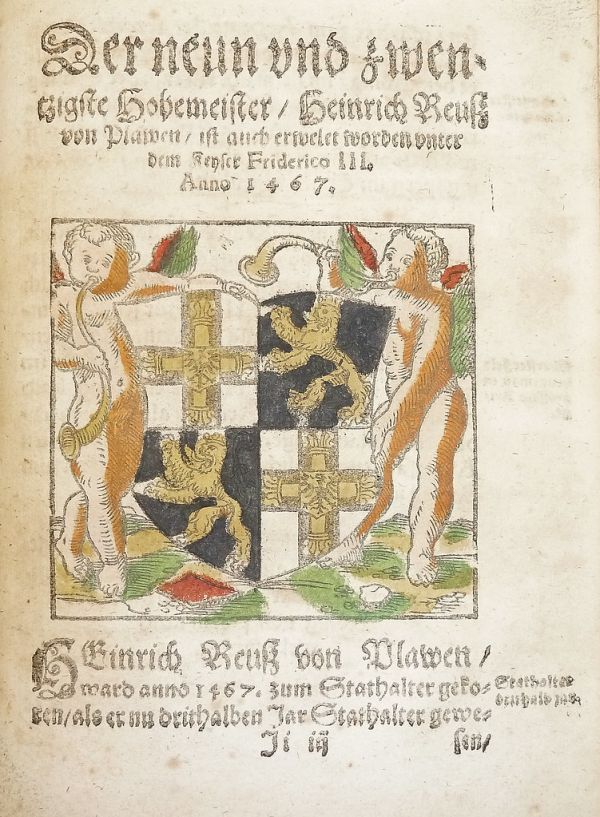 Der neun vnd zwen-
tzigste Hohemeister / Heinrich Reuß
von Plawen / ist auch erwelet worden vnter
dem Keyser Friderico III.
Anno 1467.
HEinrich Reuß von Plawen /
ward anno 1467. zum Stathalter geko-
ren / als er nu drithalben Jar Stathalter gewe-
Stathalter
drithalb jar.
Ii iij
sen /